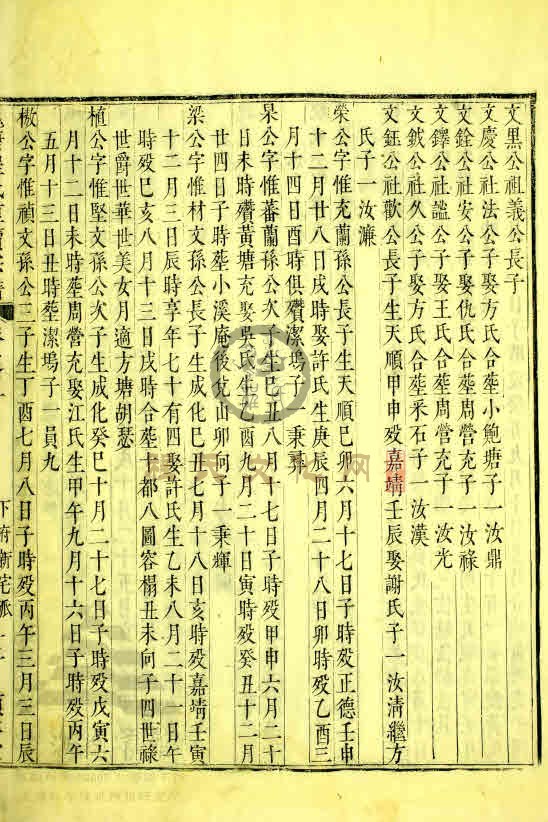 文黑公祖義公長子
文慶公社法公子娶方氏合塟小鮑塘子一汝鼎
文銓公社安公子娶仇氏合塟周營充子一汝祿
文鐸公社謐公子娶王氏合塟周營充子一汝光
文鉞公社久公子娶方氏合塟釆石子一汝漢
文鈺公社歡公長子生天順甲申殁嘉靖壬辰娶謝氏子一汝清繼方
氏子一汝濂
榮公字惟充蘭孫公長子生天順巳卯六月十七日子時殁正德壬申
十二月廿八日戌時娶許氏生庚辰四月二十八日卯時殁乙酉三
月十四日酉時俱殯潔塢子一秉彛
杲公字惟蕃蘭孫公次子生巳丑八月十七日子時殁甲申六月二十
日未時殯黃塘充娶吳氏生乙酉九月二十日寅時殁癸丑十二月
廿四日子時塟小溪庵後艮山卯向子一秉輝
梁公字惟材文孫公長子生成化巳丑七月十八日亥時殁嘉靖壬寅
十二月三日辰時享年七十有四娶許氏生乙未八月二十一日午
時殁巳亥八月十三日戌時合塟十都八圖容榻丑未向子四世祿
世爵世華世美女月適方塘胡瑟
植公字惟堅文孫公次子生成化癸巳十月二十七日子時殁戊寅六
月十二日未時塟周營充娶江氏生甲午九月十六日子時殁丙午
五月十三日丑時塟潔塢子一員九
椒公字惟禎文孫公三子生丁酉七月八日子時殁丙午三月三日辰
下府新宅派